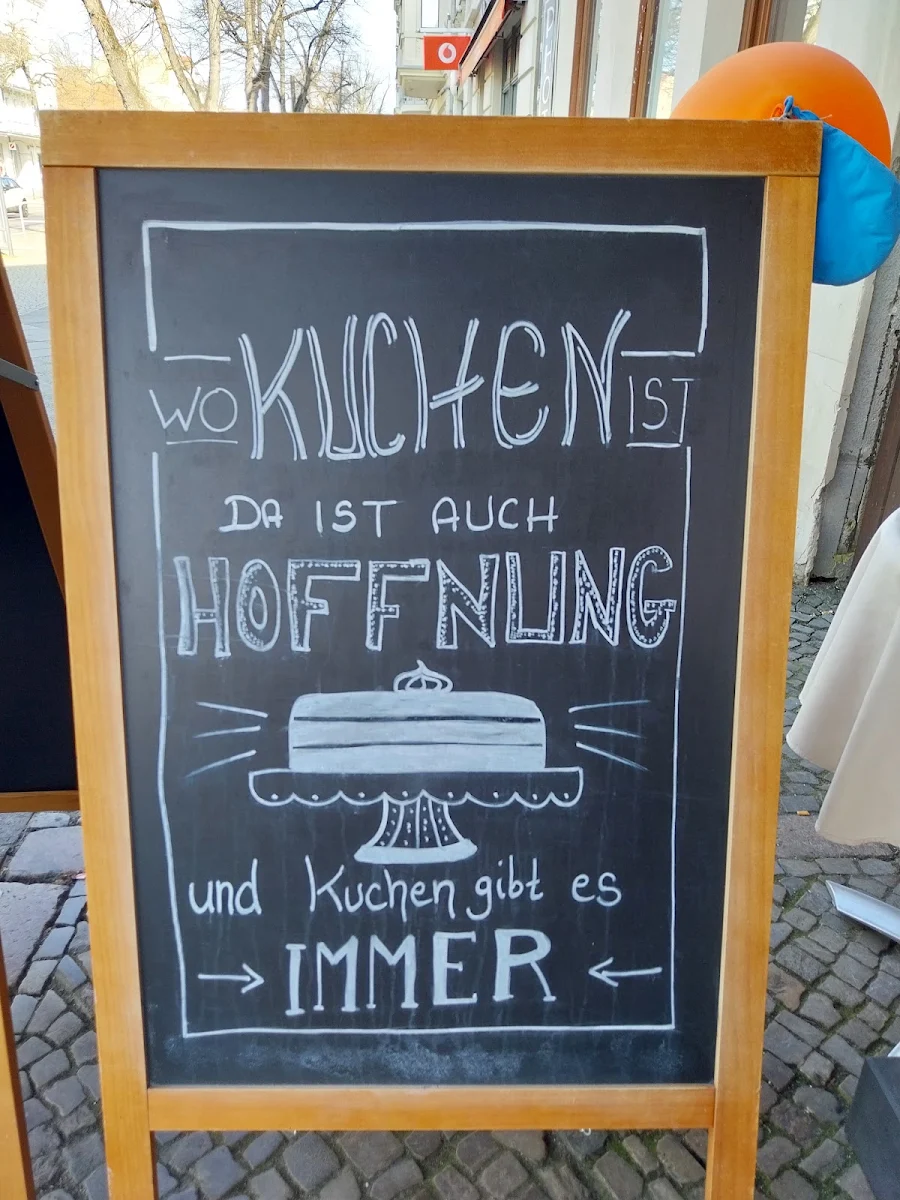 WO KUCHEN IST
DA IST AUCH
HOFFNUNG
und Kuchen gibt es
→ IMMER ←